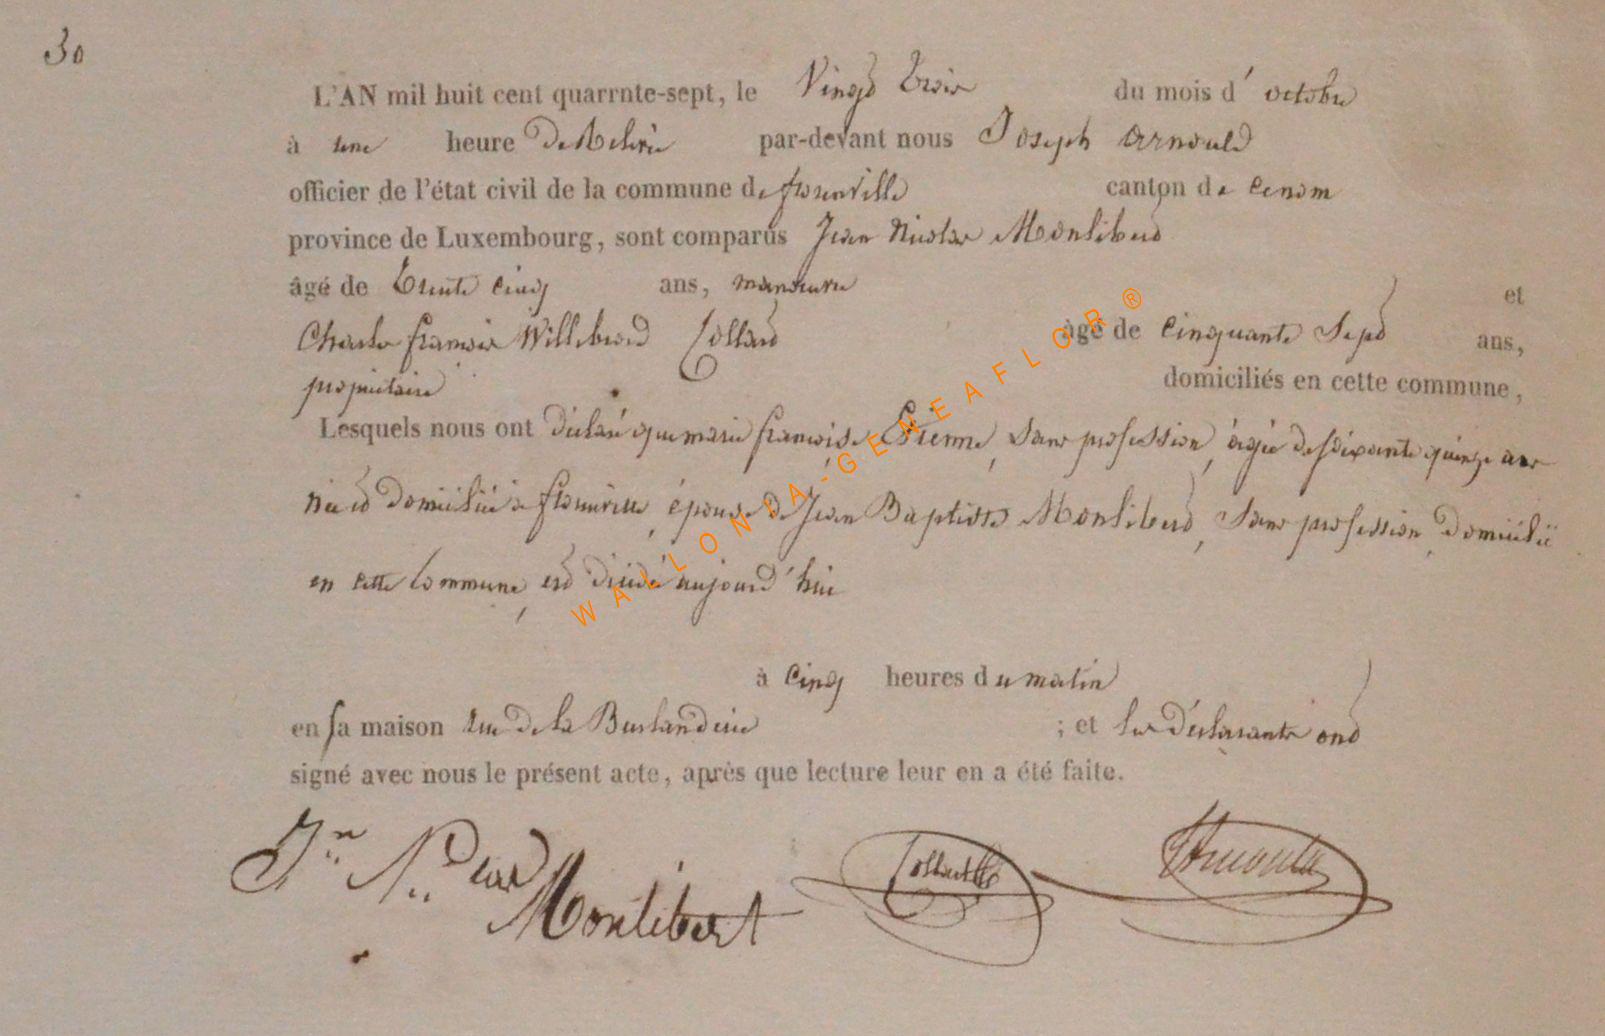 30
L'AN mil huit cent quarrnte-sept, le Vingt Trois du mois d' octobre
à une heure De Relevée par-devant nous Joseph Arnould
officier de l'état civil de la commune de florenville canton de
province de Luxembourg, sont comparus Jean Nicolas Monlibert
âgé de Trente cinq ans, manœuvre et
Charles françois Willibrord Collard âgé de cinquante Sept ans,
propriétaire domiciliés en cette commune,
Lesquels nous ont déclaré que marie françoise Etienne, Sans profession, âgée de soixante quinze ans
née et Domiciliée à florenville, épouse de Jean Baptiste Monlibert, Sans profession, Domicilié
en cette Commune, est décédée aujourd'hui
à cinq heures du matin
en sa maison rue De la ; et les Déclarants ont
signé avec nous le présent acte, après que lecture leur en a été faite.
Jn Nicolas Collard Arnould
Monlibert
WALLONIA-GENEAFLOR®